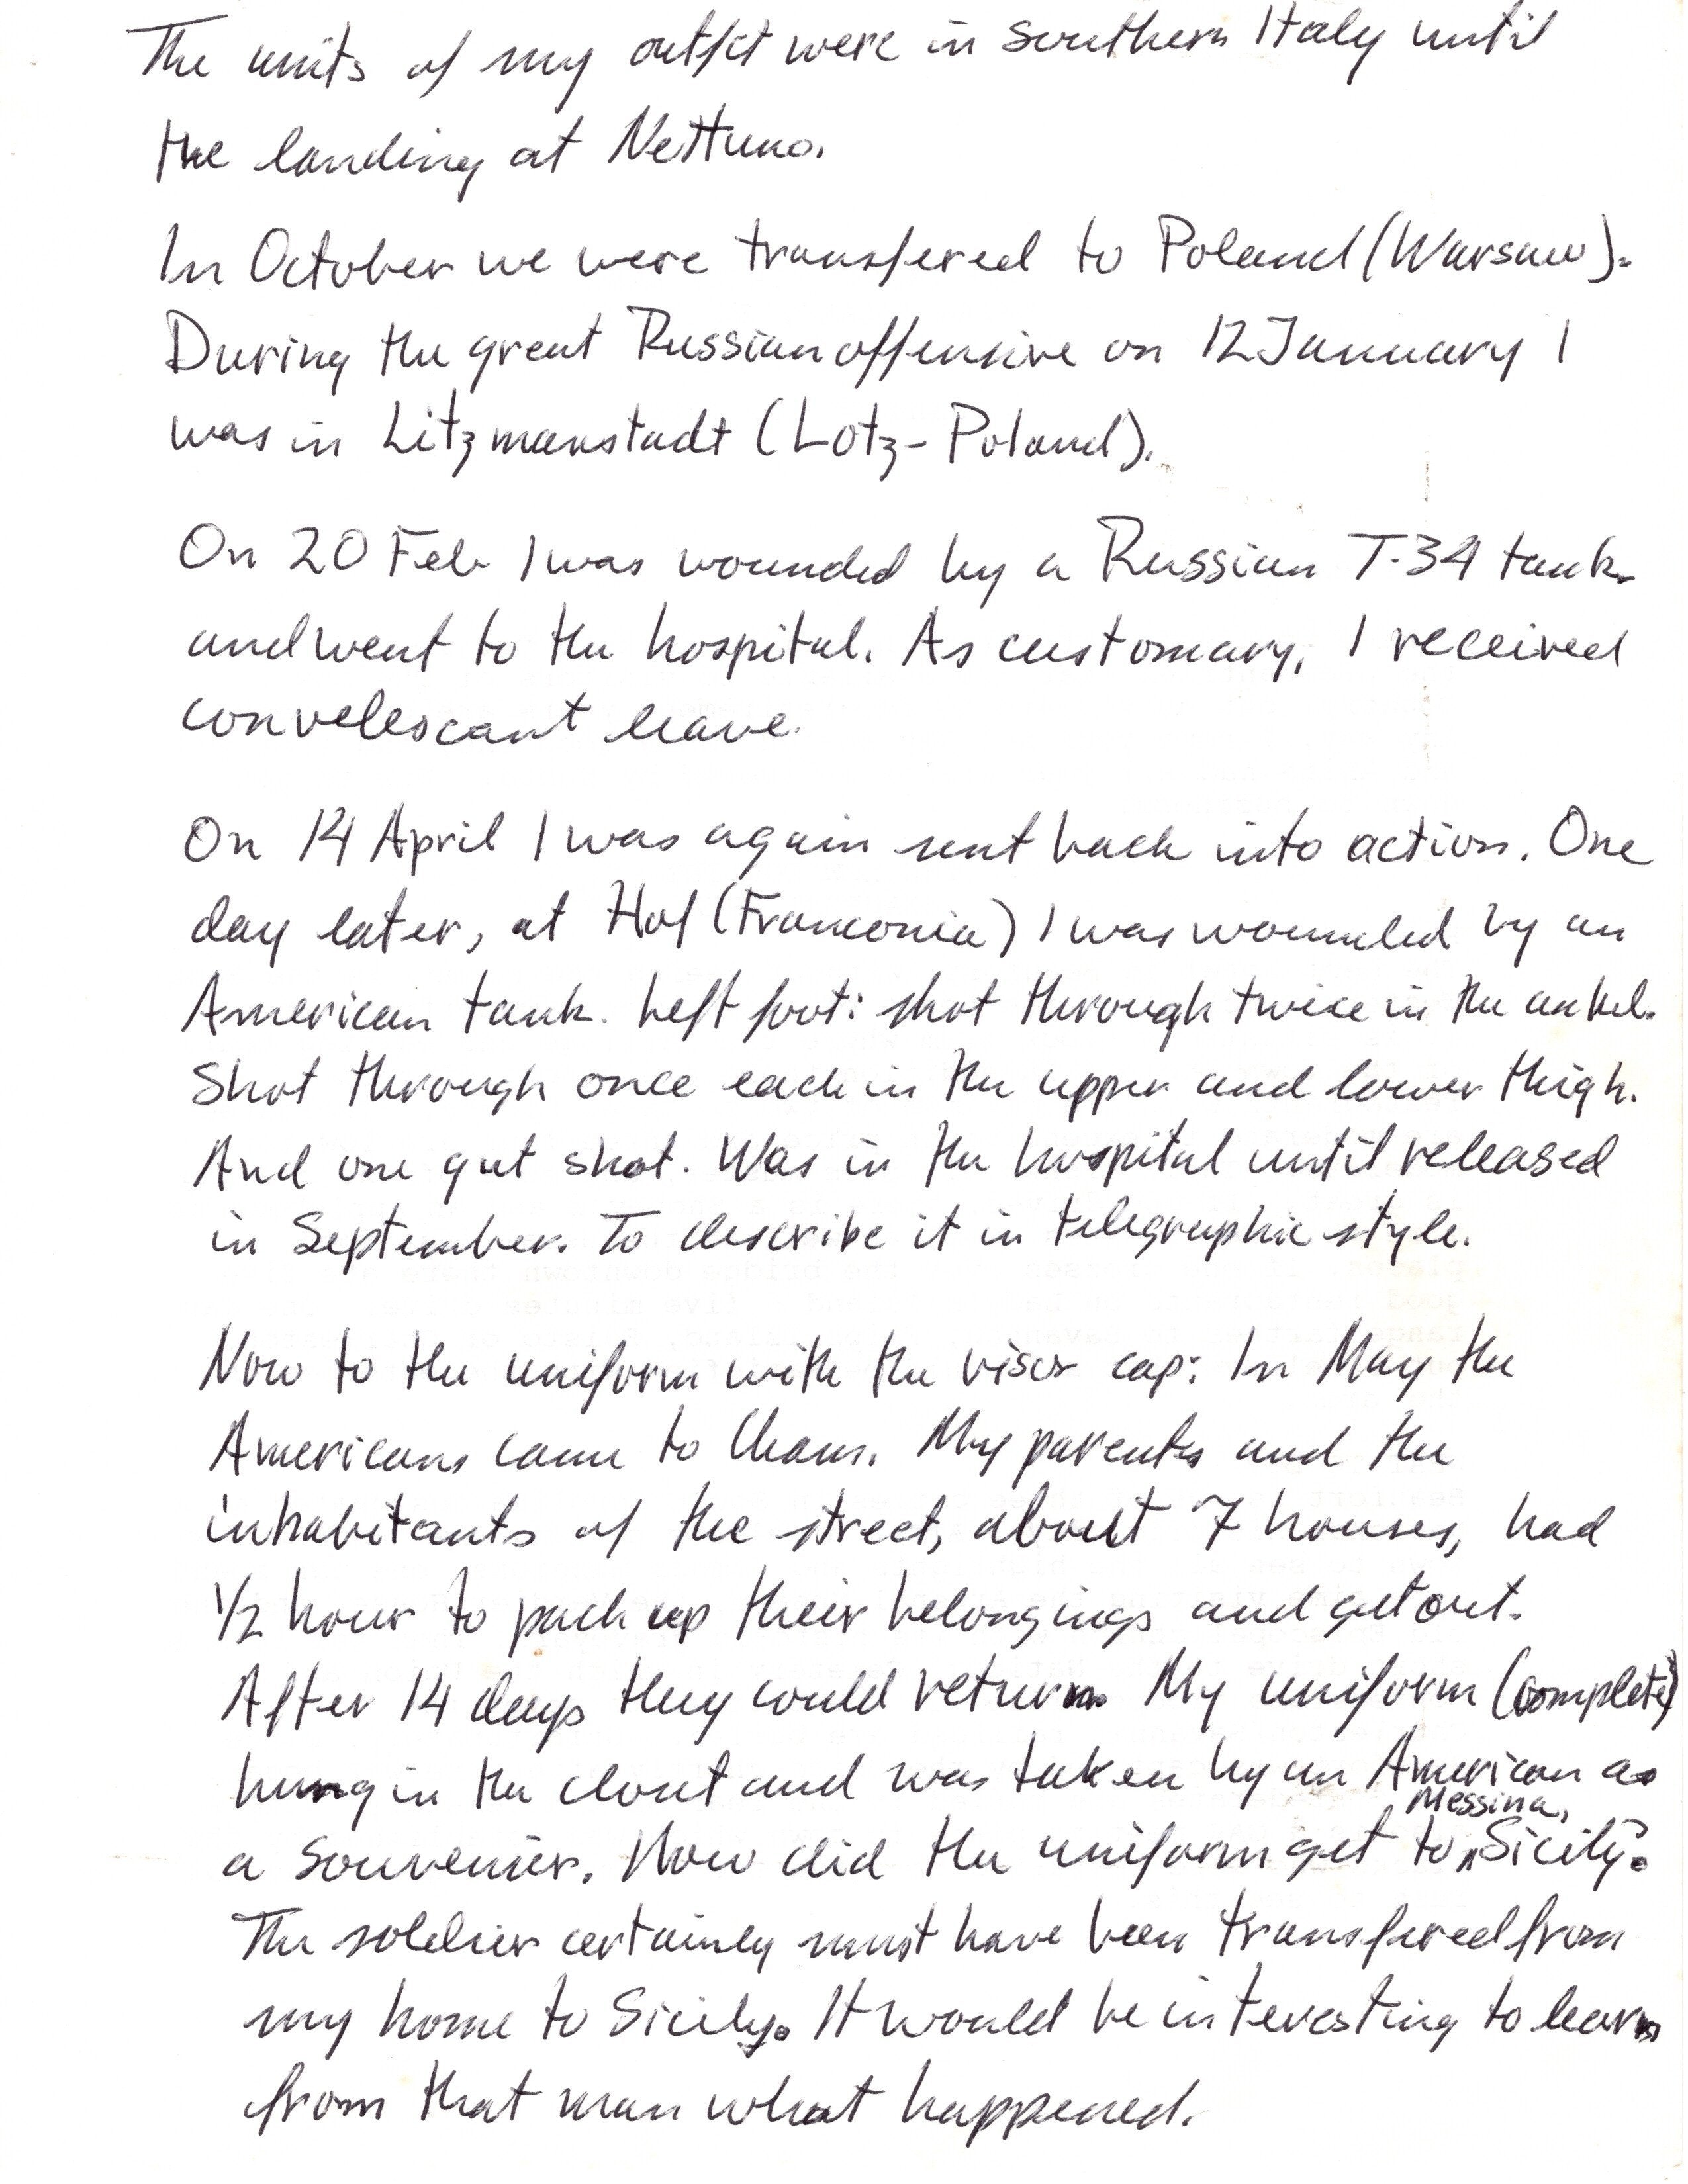 The units of my outfit were in southern Italy until
the landing at Nettuno.
In October we were transfered to Poland (Warsaw).
During the great Russian offensive on 12 January I
was in Litzmanstadt (Lotz-Poland).
On 20 Feb I was wounded by a Russian T-34 tank
and went to the hospital. As customary, I received
convelescant leave.
On 14 April I was again sent back into action. One
day later, at Hof (Franconia) I was wounded by an
American tank. Left foot: shot through twice in the ankel.
Shot through once each in the upper and lower thigh.
And one gut shot. Was in the hospital until released
in September. To describe it in telegraphic style.
Now to the uniform with the visor cap: In May the
Americans came to Cham. My parents and the
inhabitants of the street, about 7 houses, had
1/2 hour to pack up their belongings and get out.
After 14 days they could return. My uniform (complete)
hung in the closet and was taken by an American as
a souvenier. How did the uniform get to Messina, Sicily?
The soldier certainly must have been transfered from
my home to Sicily. It would be interesting to learn
from that man what happened.